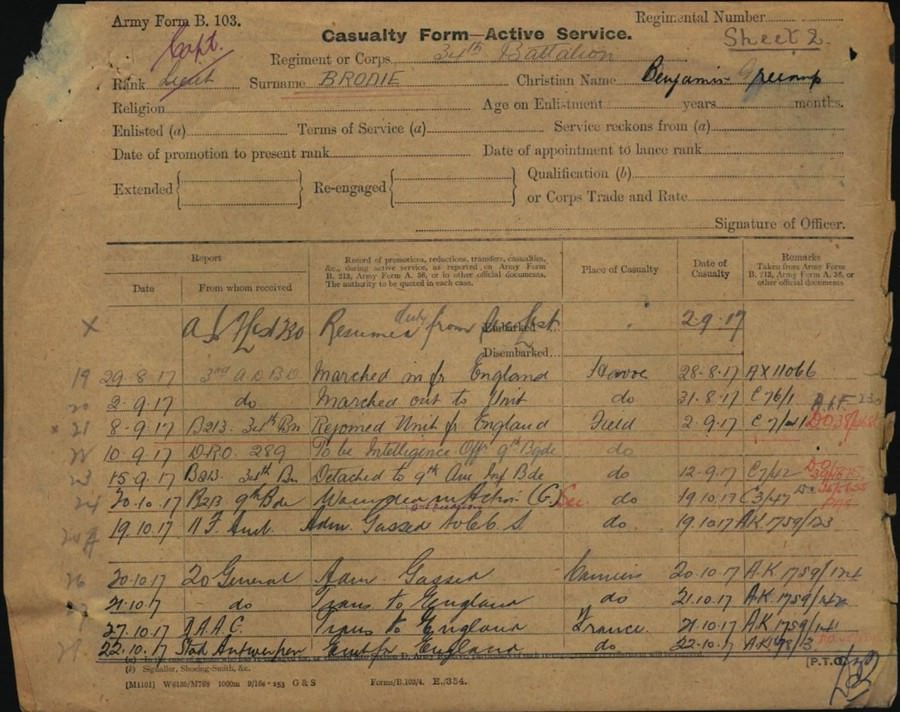 Army Form B. 103.
Regimental Number
Casualty Form—Active Service.
Sheet 2.
Capt.
Regiment or Corps 34th Battalion
Rank Lieut Surname BRODIE Christian Name Benjamin
Religion Age on Enlistment years months.
Enlisted (a) Terms of Service (a) Service reckons from (a)
Date of promotion to present rank Date of appointment to lance rank
Extended Re-engaged Qualification (b)
or Corps Trade and Rate
Signature of Officer.
Report
Date From whom received
Record of promotions, reductions, transfers, casualties, &c., during active service, as reported on Army Form B. 213, Army Form A. 36, or in other official documents. The authority to be quoted in each case.
Place of Casualty
Date of Casualty
Remarks
Taken from Army Form B. 213, Army Form A. 36, or other official documents
x Resumes duty from 2-9-17
Embarked
Disembarked
19 29-8-17 3rd A.D.B.D. Marched in fr England Havre 28-8-17 AX11066
20 2-9-17 do Marched out to Unit 31-8-17 C 76/1
x 21 8-9-17 B213. 34th Bn Rejoined Unit fr England Field 2-9-17
22 10-9-17 D.R.O. 289 To be Intelligence Offr 9th Bgde do
23 15-9-17 B213. 34th Bn Detached to 9th Aus Inf Bde do 12-9-17 C7/42
24 20-10-17 B213 9th Bde Wounded in Action (G) do 19.10.17 C3/47
19.10.17 Adm. Gassed do. 19.10.17 AK 1759/123
26 20.10.17 20 General Adm. Gassed Camiers 20.10.17 A.K 1759/124
21.10.17 do Trans to England do 21.10.17 A.K 1759/142
27.10.17 A.A.G. Trans to England France. 21.10.17 A.K 1759/141
22.10.17 Stad Antwerpen Emb fr England do 22.10.17
(b) Signaller, Shoeing-Smith, &c.
[P.T.O.
[M1101] W6135/M768 1000m 9/16 G & S Forms/B.103/4. E./354.